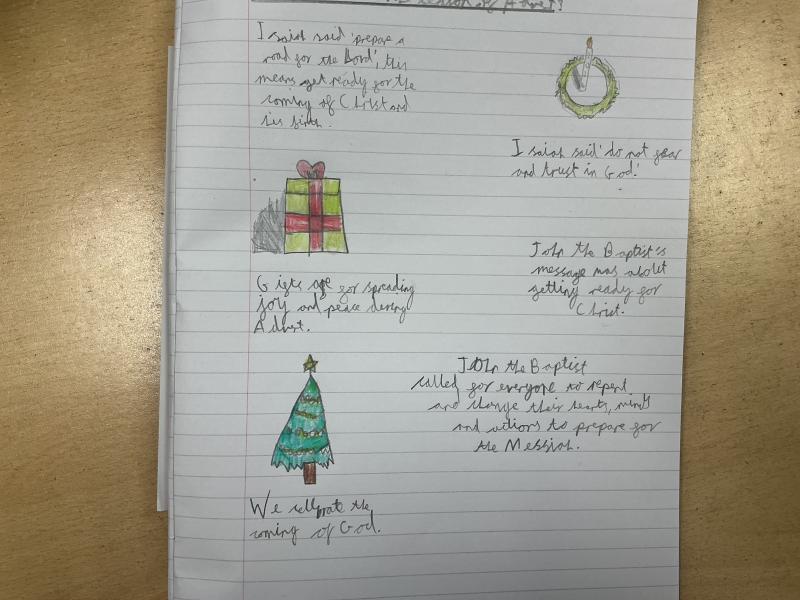 season of Advent?
Isaiah said 'prepare a
road for the Lord', this
means get ready for the
coming of Christ and
his birth.
Isaiah said 'do not fear
and trust in God.'
Gifts are for spreading
joy and peace during
Advent.
John the Baptist's
message was about
getting ready for
Christ.
John the Baptist
called for everyone to repent
and change their hearts, minds
and actions to prepare for
the Messiah.
We celebrate the
coming of God.